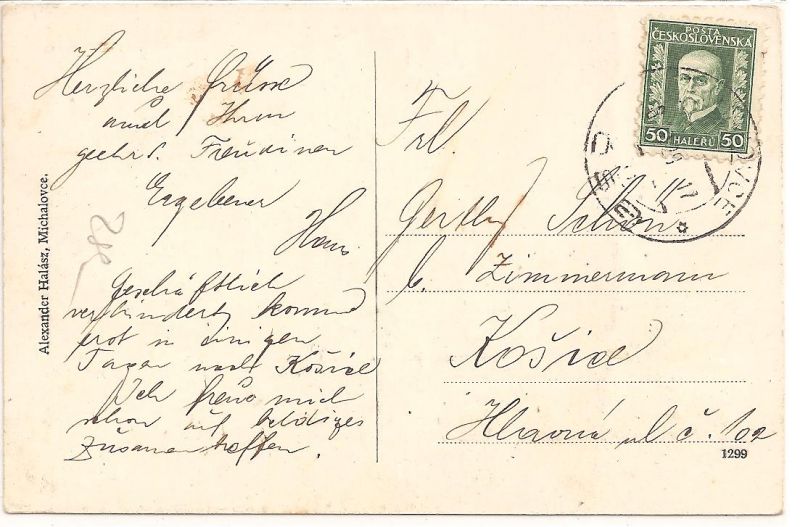 Herzliche Grüsse
auch Ihren
geehrt. Freundinen
Ergebener
Hans
Geschäftlich
verhindert komme
erst in einigen
Tagen nach Košice
Ich freue mich
schon auf baldiges
Zusammentreffen.
Alexander Halász, Michalovce.
POŠTA
ČESKOSLOVENSKÁ
50 HALÉŘŮ 50
Frl.
Schön
b. Zimmermann
Košice
Hlavná ul č. 102
1299